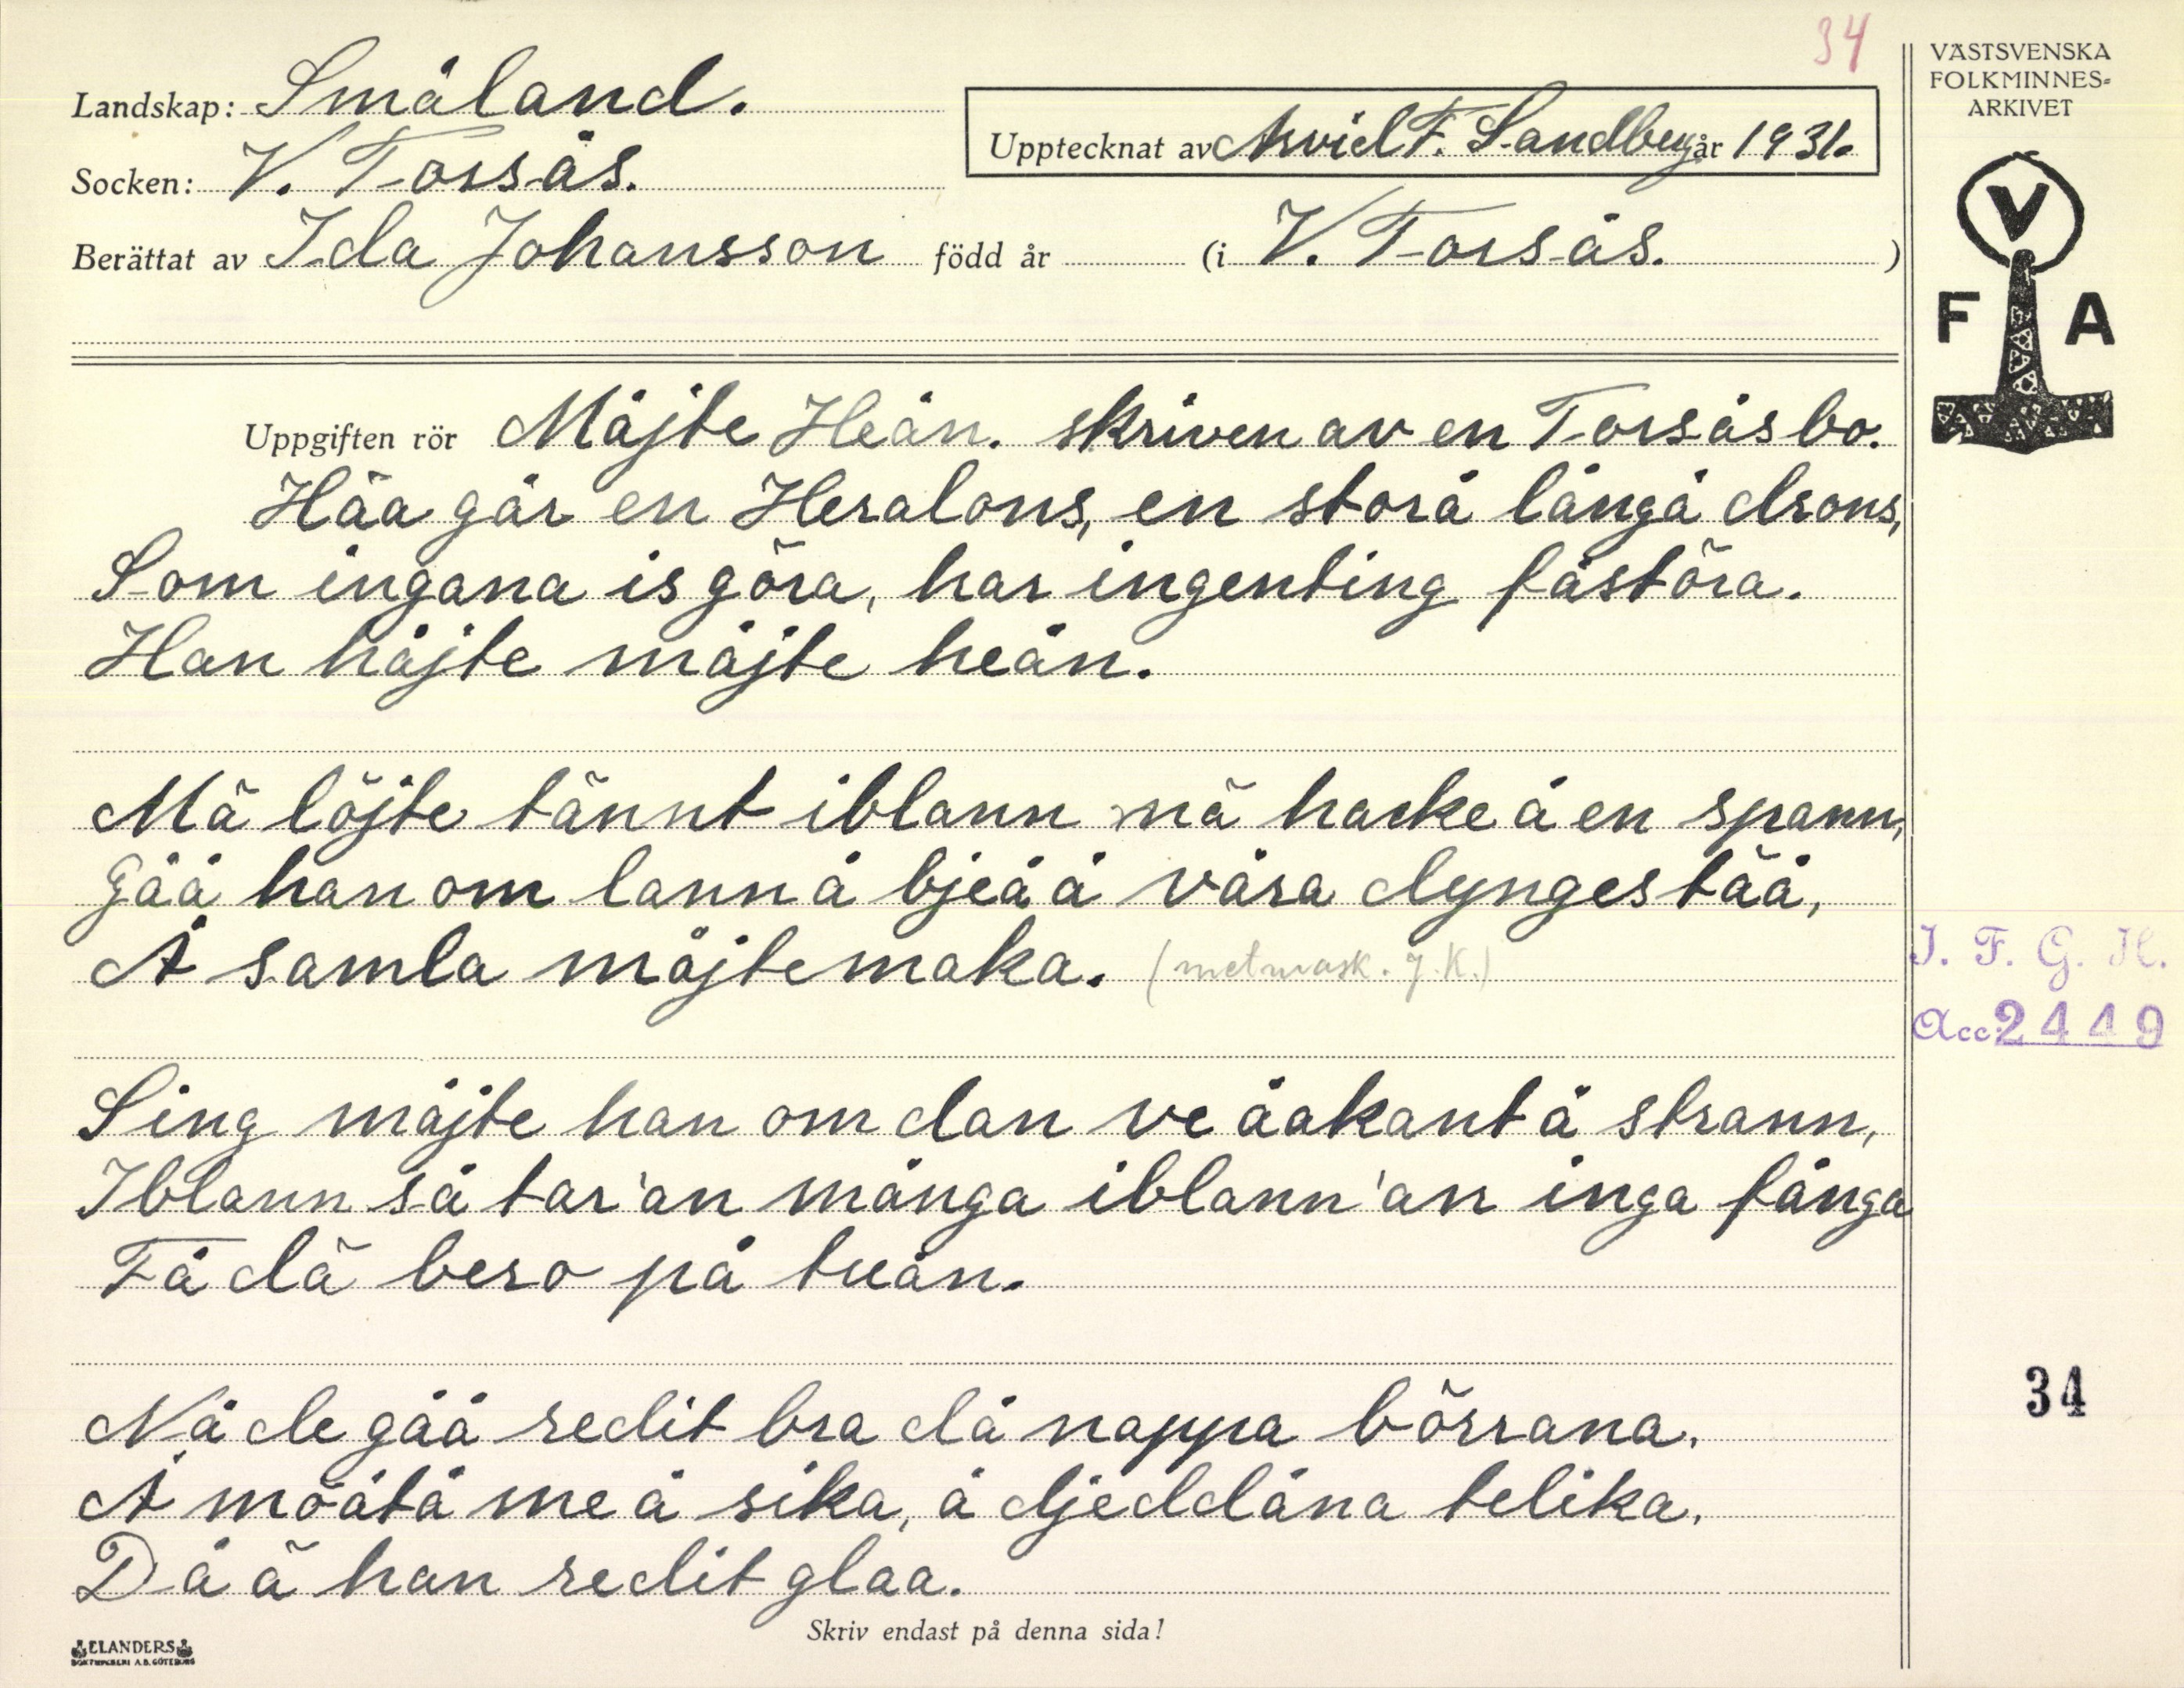 34
VÄSTSVENSKA
FOLKMINNES-
ARKIVET
Landskap: Småland.
Upptecknat av Arvid F. Sandberg år 1931.
Socken: V. Torsås.
Berättat av Ida Johansson född år (i V. Torsås. )
V
F A
Uppgiften rör Måjte Heån. skriven av en Torsåsbo.
Hãa går en Heralons, en storå långå drons,
Som ingana is gõra, har ingenting fåstõra.
Han håjte måjte heån.
Mã lõjte tãnnt iblann mã harke å en spann,
Gåå han om lann å bjeå å våra dyngestãå,
Å samla måjtemaka. (metmask. J.K.)
I. F. G. H.
Acc. 2449
Sing måjte han om dan ve åakant å strann,
Iblann så tar'an många iblann'an inga fånga
Få dã bero på tueån.
34
Nå de gåå redit bra då nappa bõrrana.
Å mõåtå me å sika, å djeddåna telika.
Då ã han redit glaa.
Skriv endast på denna sida!
ELANDERS
BOKTRYCKERI A.B. GÖTEBORG